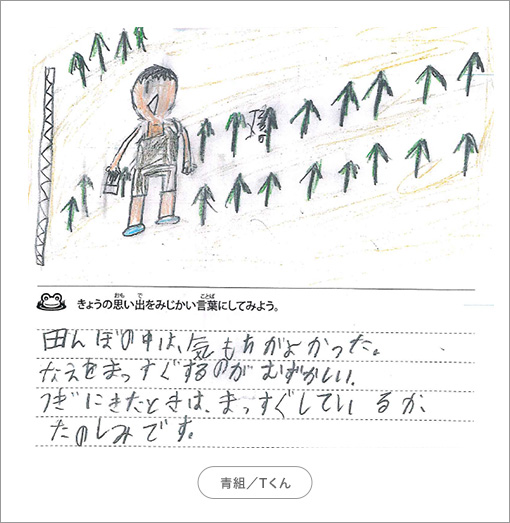 きょうの思い出をみじかい言葉にしてみよう。
田んぼの中は、気もちがよかった。
なえをまっすぐするのがむずかしい。
つぎにきたときは、まっすぐしているか、
たのしみです。
青組／Tくん